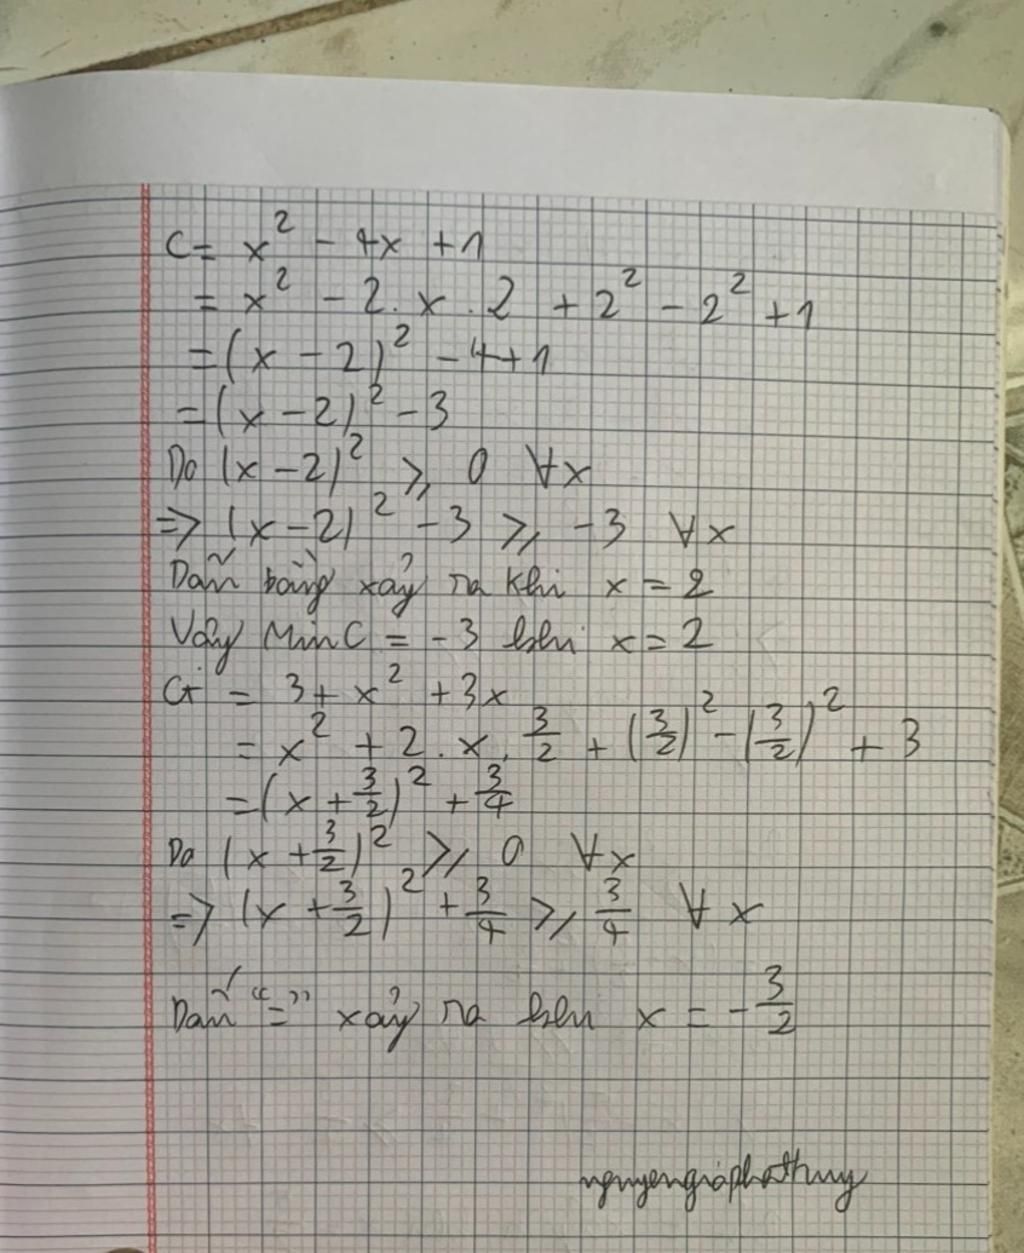 C = x² - 4x + 1
= x² - 2 . x . 2 + 2² - 2² + 1
= (x - 2)² - 4 + 1
= (x - 2)² - 3
Do (x - 2)² ≥ 0 ∀x
=> (x - 2)² - 3 ≥ -3 ∀x
Dấu bằng xảy ra khi x = 2
Vậy Min C = -3 khi x = 2
G = 3 + x² + 3x
= x² + 2 . x . 3/2 + (3/2)² - (3/2)² + 3
= (x + 3/2)² + 3/4
Do (x + 3/2)² ≥ 0 ∀x
=> (x + 3/2)² + 3/4 ≥ 3/4 ∀x
Dấu "=" xảy ra khi x = -3/2
nguyengiaphathuy